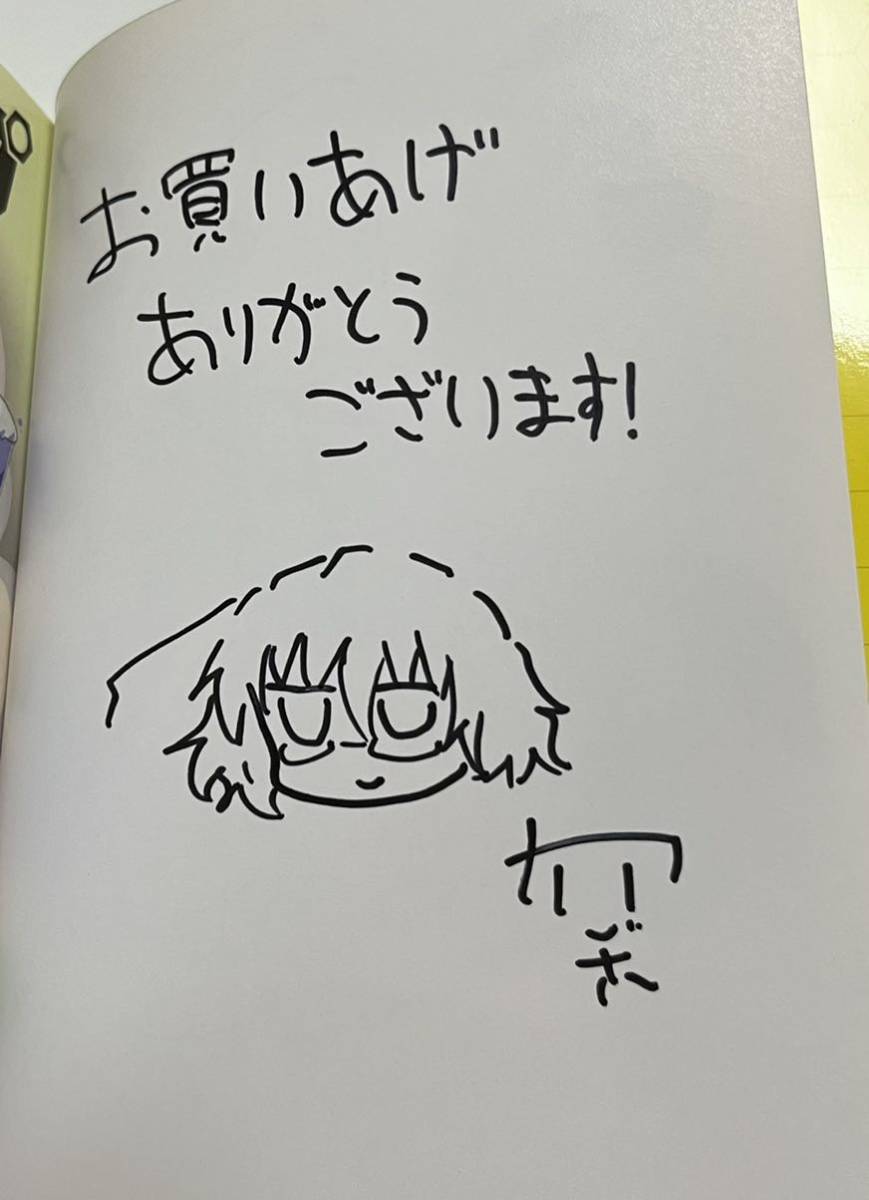 お買いあげ
ありがとう
ございます!